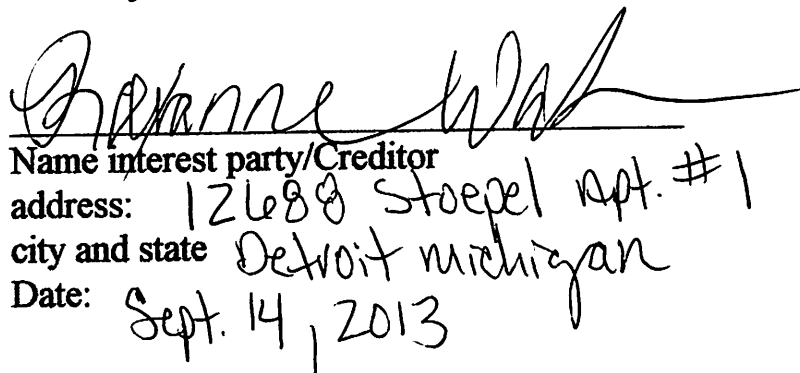 Cheyanne
Name interest party/Creditor
address: 12688 Stoepel Apt. #1
city and state Detroit michigan
Date: Sept. 14, 2013